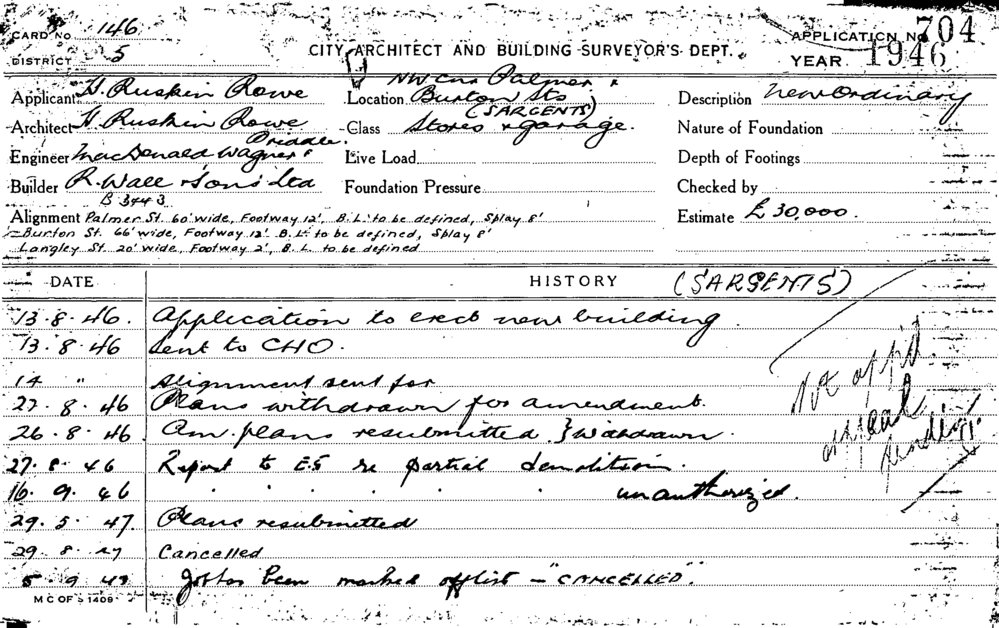 CARD No 146
APPLICATION No 704
DISTRICT 5
CITY ARCHITECT AND BUILDING SURVEYOR'S DEPT.
YEAR 1946
Applicant H. Ruskin Rowe
Location NW cnr Palmer &
Burton Sts
(SARGENTS)
Description New Ordinary
Architect H. Ruskin Rowe
Class Stores & garage.
Nature of Foundation
Engineer MacDonald Wagner & Priddle.
Live Load
Depth of Footings
Builder R. Wall & Sons Ltd
Foundation Pressure
Checked by
B 3443
Alignment Palmer St. 60' wide, Footway 12', B.L. to be defined, Splay 8'
Estimate £30,000.
Burton St. 66' wide, Footway 12' B.L. to be defined, Splay 8'
Langley St. 20' wide, Footway 2', B.L. to be defined
DATE HISTORY (SARGENTS)
13.8.46. Application to erect new building.
13.8.46 Sent to CHO.
14 " Alignment sent for
.8.46 Plans withdrawn for amendment.
26.8.46. Am. plans resubmitted } Withdrawn.
27.8.46 Report to ES re partial demolition.
16.9.46 . . . . unauthorized.
29.5.47. Plans resubmitted
29.8.47 Cancelled
5.9. Job has been marked off list - "CANCELLED".
Not app'd
appeal
pending
M C OF S 1409